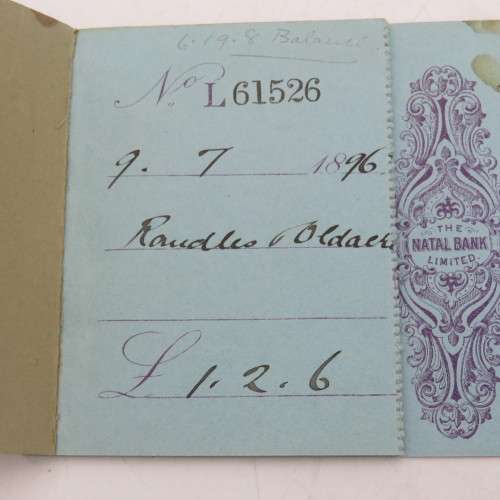 6.19.8 Balance
No. L 61526
9. 7 1896
Randles & Oldacre
£ 1.2.6
THE
NATAL BANK
LIMITED.